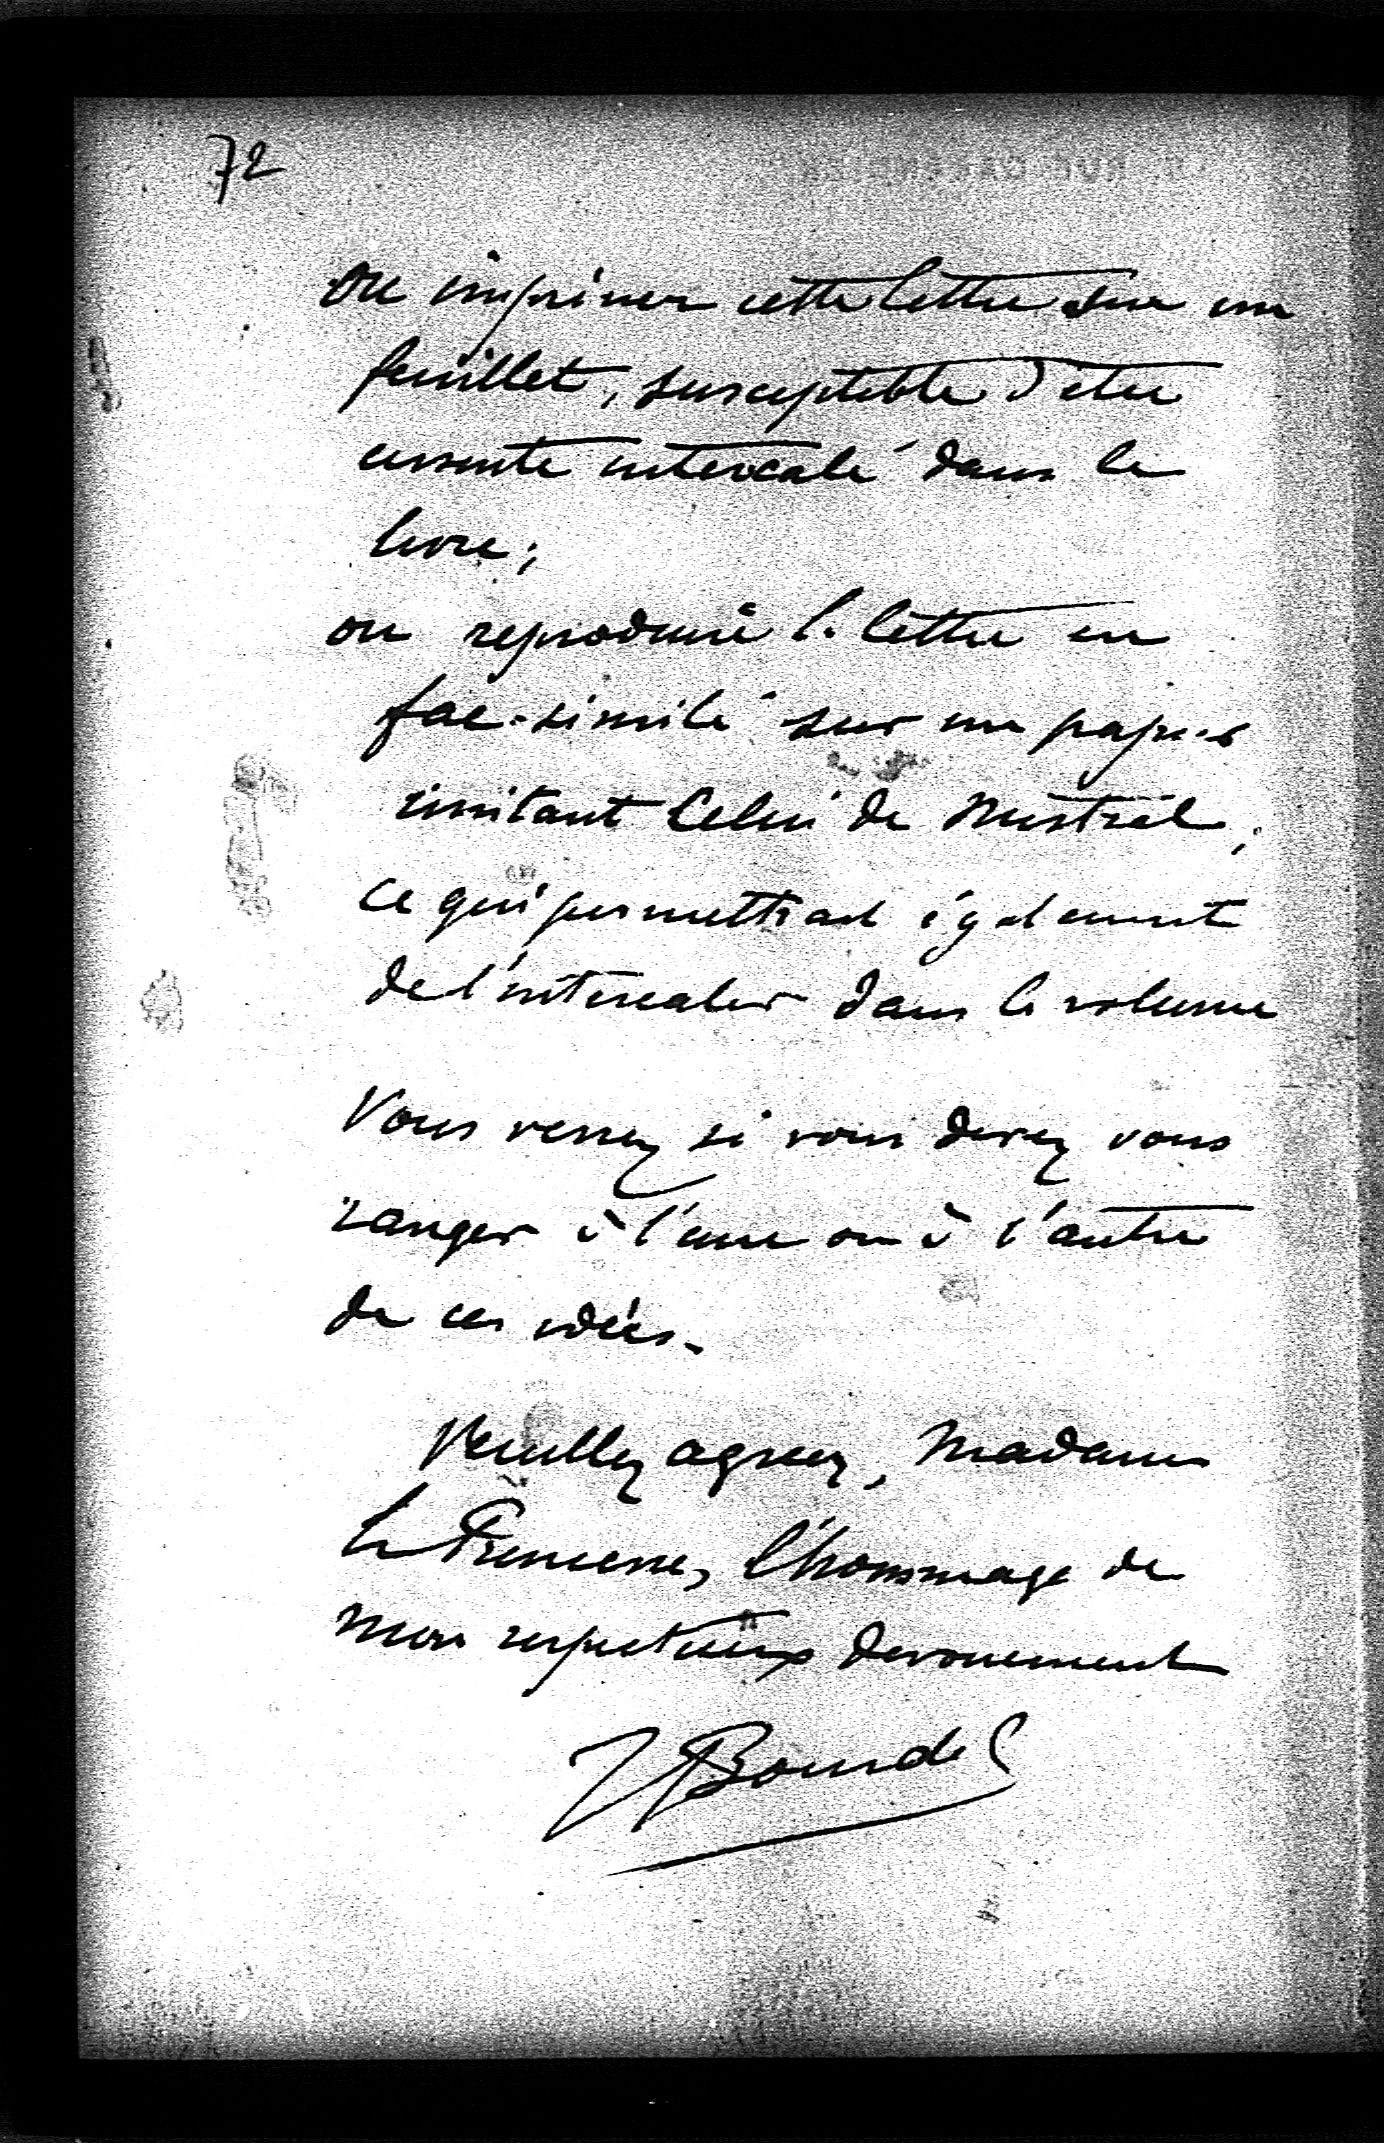 72
ou imprimer cette lettre sur un
feuillet, susceptible d'être
ensuite intercalé dans le
livre;
ou reproduire la lettre en
fac-similé sur un papier
imitant celui de Mistral,
ce qui permettrait également
de l'intercaler dans le volume
Vous verrez si vous devez vous
ranger à l'une ou à l'autre
de ces idées.
Veuillez agréer, Madame
la Princesse, l'hommage de
mon respectueux dévouement
Bourdel